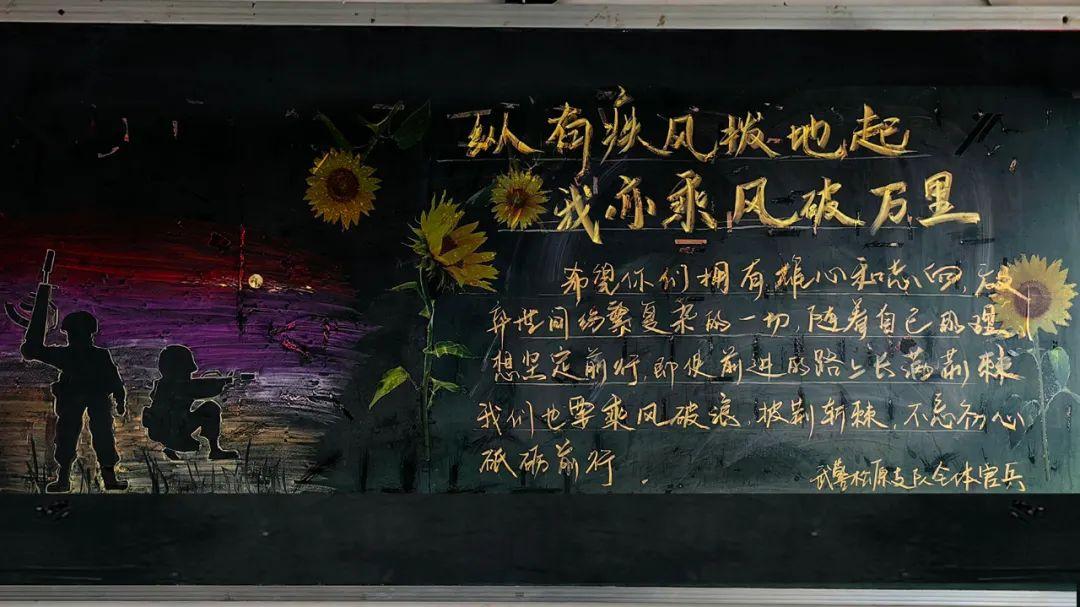 纵有疾风拨地起
我亦乘风破万里
希望你们拥有雄心和志向,破
碎世间纷繁复杂的一切,随着自己的理
想坚定前行,即使前进的路上长满荆棘
我们也要乘风破浪,披荆斩棘,不忘初心
砥砺前行.
武警松原支队全体官兵